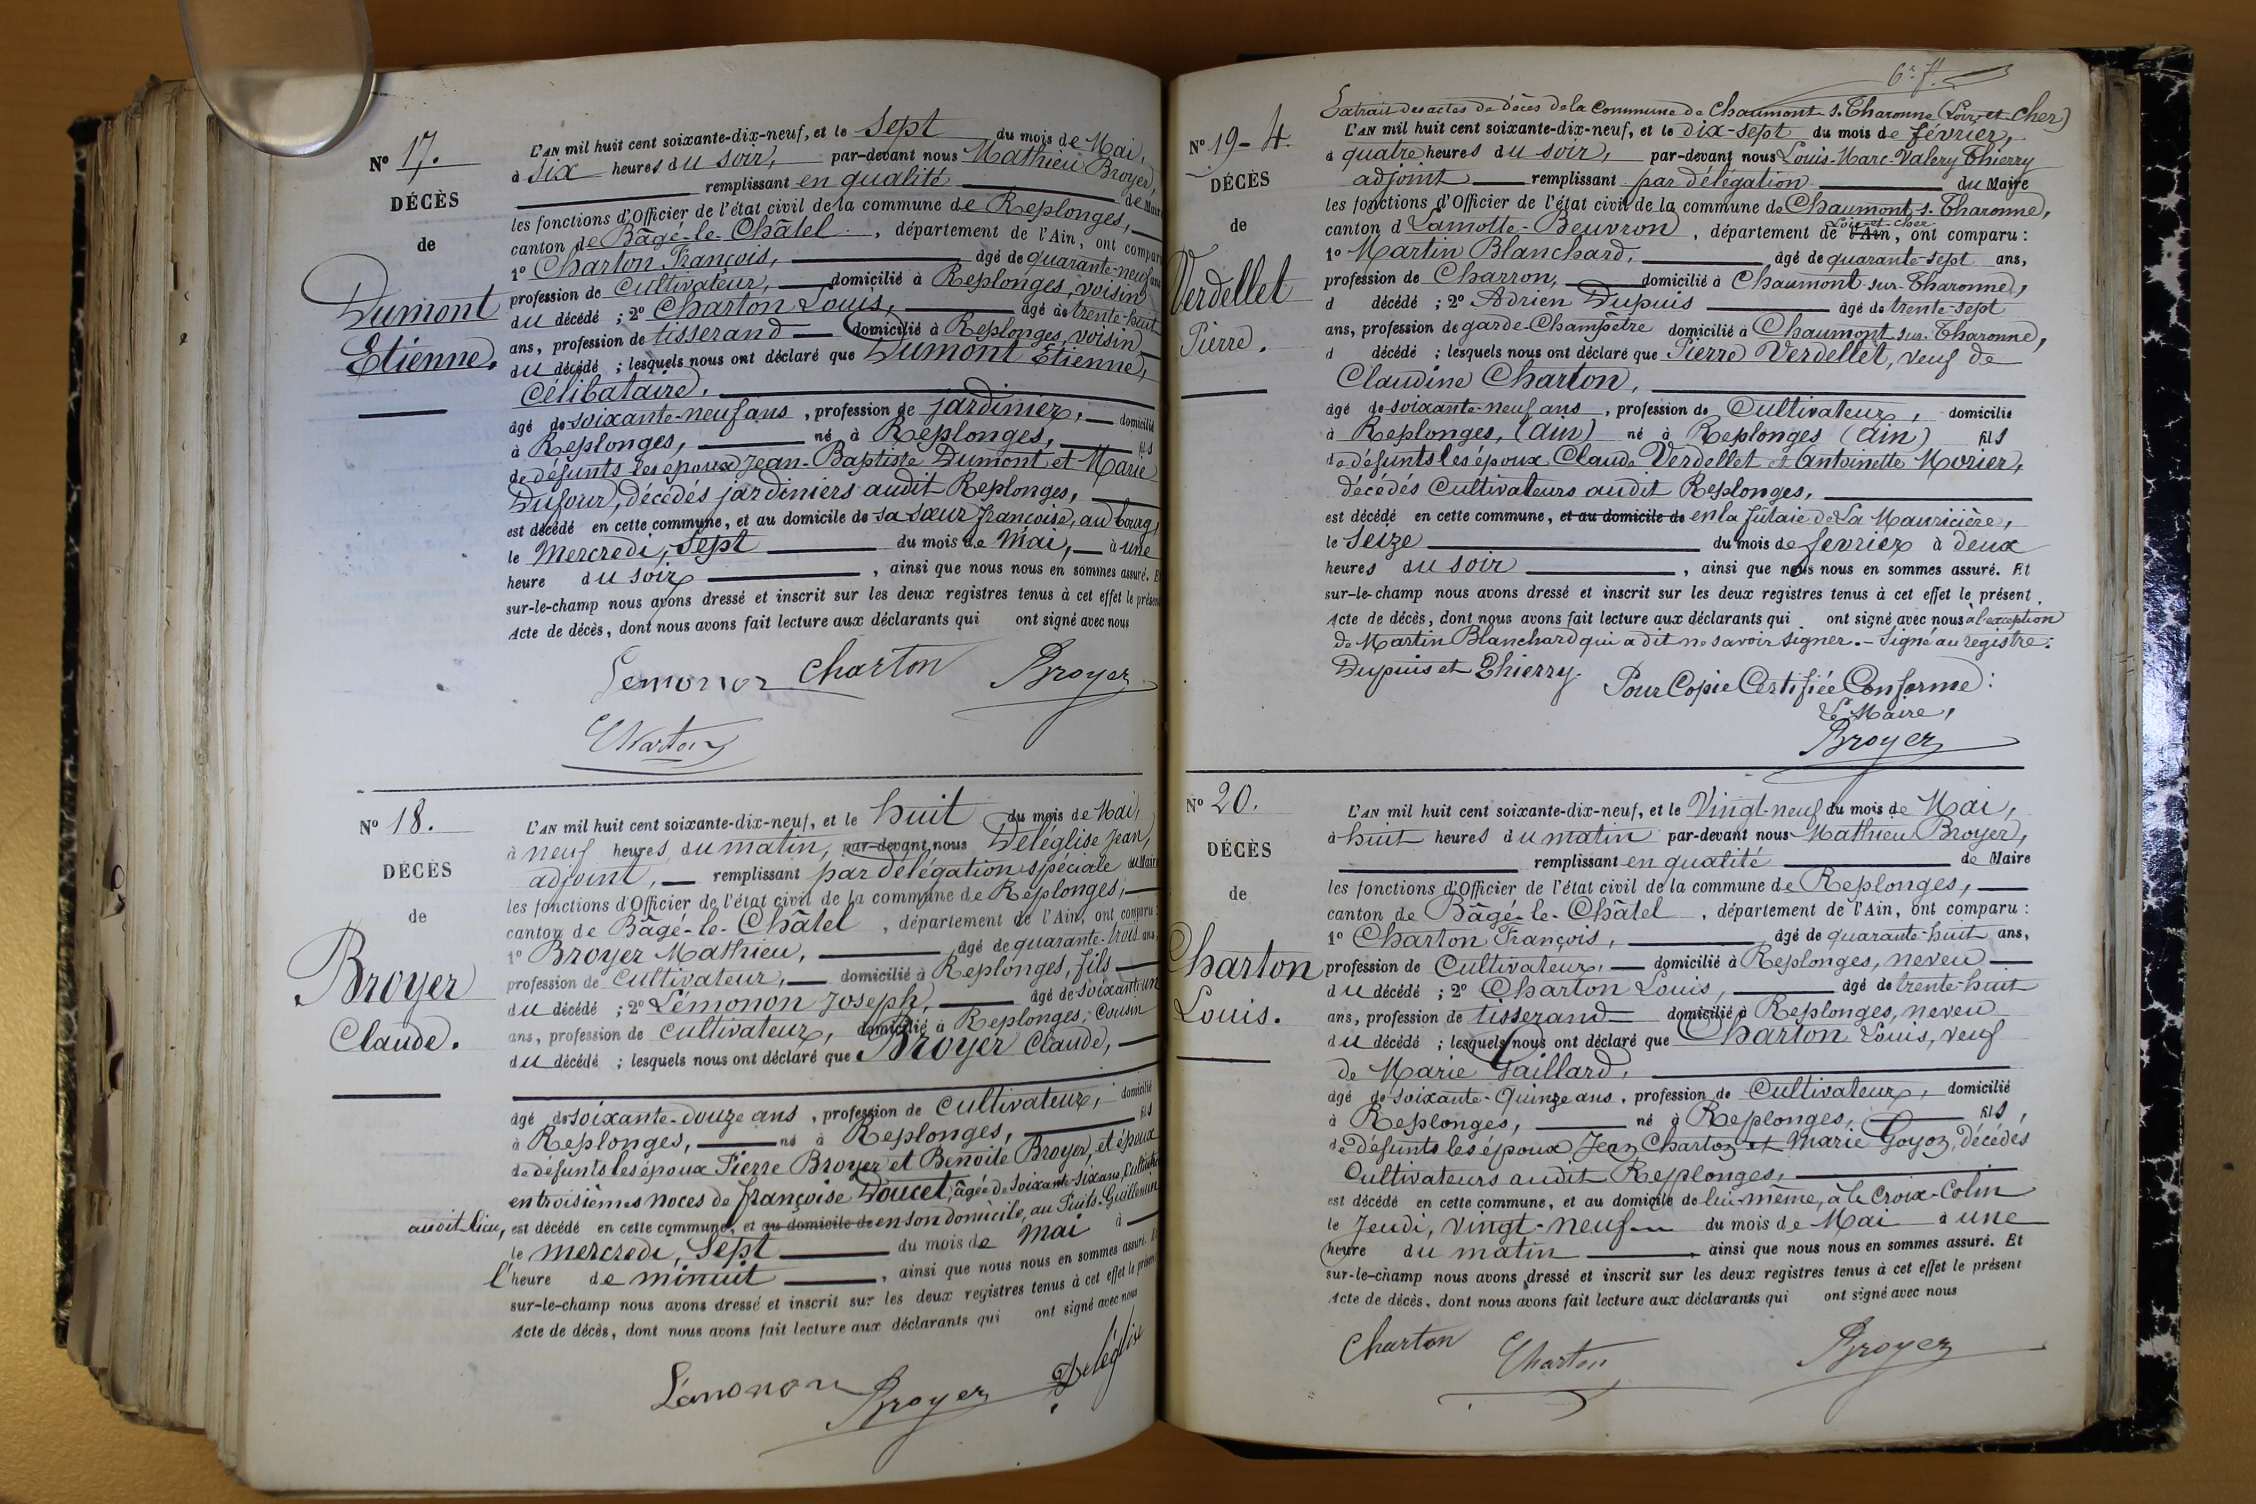 Nº 17.
DÉCÈS
de
Dumont
Etienne.
L'AN mil huit cent soixante-dix-neuf, et le sept du mois de Mai,
à six heures du soir, par-devant nous Mathieu Broyer,
remplissant en qualité de Maire
les fonctions d'Officier de l'état civil de la commune de Replonges,
canton de Bâgé-le-Châtel, département de l'Ain, ont comparu
1º Charton François, âgé de quarante-neuf ans
profession de Cultivateur, domicilié à Replonges, voisin
du décédé ; 2º Charton Louis, âgé de trente-huit
ans, profession de tisserand domicilié à Replonges, voisin
du décédé ; lesquels nous ont déclaré que Dumont Etienne,
Célibataire,
âgé de soixante-neuf ans, profession de jardinier, domicilié
à Replonges, né à Replonges, fils
de défunts les époux Jean-Baptiste Dumont et Marie
Dufour, décédés jardiniers audit Replonges,
est décédé en cette commune, et au domicile de sa sœur françoise, au bourg,
le Mercredi, sept du mois de Mai, à une
heure du soir, ainsi que nous nous en sommes assuré. Et
sur-le-champ nous avons dressé et inscrit sur les deux registres tenus à cet effet le présent
Acte de décès, dont nous avons fait lecture aux déclarants qui ont signé avec nous
Lemonon Charton Broyer
Charton
Nº 18.
DÉCÈS
de
Broyer
Claude.
L'AN mil huit cent soixante-dix-neuf, et le huit du mois de Mai,
à neuf heures du matin, par-devant nous Deléglise Jean,
adjoint, remplissant par délégation spéciale du Maire
les fonctions d'Officier de l'état civil de la commune de Replonges,
canton de Bâgé-le-Châtel, département de l'Ain, ont comparu :
1º Broyer Mathieu, âgé de quarante-trois ans,
profession de cultivateur, domicilié à Replonges, fils
du décédé ; 2º Lémonon Joseph, âgé de soixante-un
ans, profession de cultivateur, domicilié à Replonges, Cousin
du décédé ; lesquels nous ont déclaré que Broyer Claude,
âgé de soixante-douze ans, profession de cultivateur, domicilié
à Replonges, né à Replonges, fils
de défunts les époux Pierre Broyer et Benoîte Broyer, et époux
en troisièmes noces de françoise Doucet, âgée de soixante-six ans, Cultivatrice
audit lieu, est décédé en cette commune, et au domicile de en son domicile, au Puits-Guillemin
le mercredi, Sept du mois de Mai à
l'heure de minuit, ainsi que nous nous en sommes assuré. Et
sur-le-champ nous avons dressé et inscrit sur les deux registres tenus à cet effet le présent
Acte de décès, dont nous avons fait lecture aux déclarants qui ont signé avec nous
Lémonon Broyer Deléglise
Extrait des actes de décès de la Commune de Chaumont s. Tharonne (Loir-et-Cher)
Nº 19-4.
DÉCÈS
de
Verdellet
Pierre.
L'AN mil huit cent soixante-dix-neuf, et le dix-sept du mois de février,
à quatre heures du soir, par-devant nous Louis-Marc-Valery Thierry
adjoint remplissant par délégation du Maire
les fonctions d'Officier de l'état civil de la commune de Chaumont s. Tharonne,
canton d Lamotte-Beuvron, département de l'Ain Loir-et-Cher, ont comparu :
1º Martin Blanchard, âgé de quarante-sept ans,
profession de Charron, domicilié à Chaumont-sur-Tharonne,
d décédé ; 2º Adrien Dupuis âgé de trente-sept
ans, profession de garde-Champêtre domicilié à Chaumont-sur-Tharonne,
d décédé ; lesquels nous ont déclaré que Pierre Verdellet, veuf de
Claudine Charton,
âgé de soixante-neuf ans, profession de Cultivateur, domicilié
à Replonges, (Ain) né à Replonges (Ain) fils
de défunts les époux Claude Verdellet et Antoinette Morier,
décédés Cultivateurs audit Replonges,
est décédé en cette commune, et au domicile de en la futaie de La Mauricière,
le seize du mois de février à deux
heures du soir, ainsi que nous nous en sommes assuré. Et
sur-le-champ nous avons dressé et inscrit sur les deux registres tenus à cet effet le présent
Acte de décès, dont nous avons fait lecture aux déclarants qui ont signé avec nous à l'exception
de Martin Blanchard qui a dit ne savoir signer. - Signé au registre :
Dupuis et Thierry.
Pour Copie Certifiée Conforme :
Le Maire,
Broyer
Nº 20.
DÉCÈS
de
Charton
Louis.
L'AN mil huit cent soixante-dix-neuf, et le Vingt-neuf du mois de Mai,
à huit heures du matin par-devant nous Mathieu Broyer,
remplissant en qualité de Maire
les fonctions d'Officier de l'état civil de la commune de Replonges,
canton de Bâgé-le-Châtel, département de l'Ain, ont comparu :
1º Charton François, âgé de quarante-huit ans,
profession de Cultivateur, domicilié à Replonges, neveu
du décédé ; 2º Charton Louis, âgé de trente-huit
ans, profession de tisserand domicilié à Replonges, neveu
du décédé ; lesquels nous ont déclaré que Charton Louis, veuf
de Marie Gaillard,
âgé de soixante-Quinze ans, profession de Cultivateur, domicilié
à Replonges, né à Replonges, fils,
de défunts les époux Jean Charton et Marie Goyon, décédés
Cultivateurs audit Replonges,
est décédé en cette commune, et au domicile de lui-même, à la Croix-Colin
le Jeudi, vingt-neuf du mois de Mai à une
heure du matin, ainsi que nous nous en sommes assuré. Et
sur-le-champ nous avons dressé et inscrit sur les deux registres tenus à cet effet le présent
Acte de décès, dont nous avons fait lecture aux déclarants qui ont signé avec nous
Charton Charton Broyer